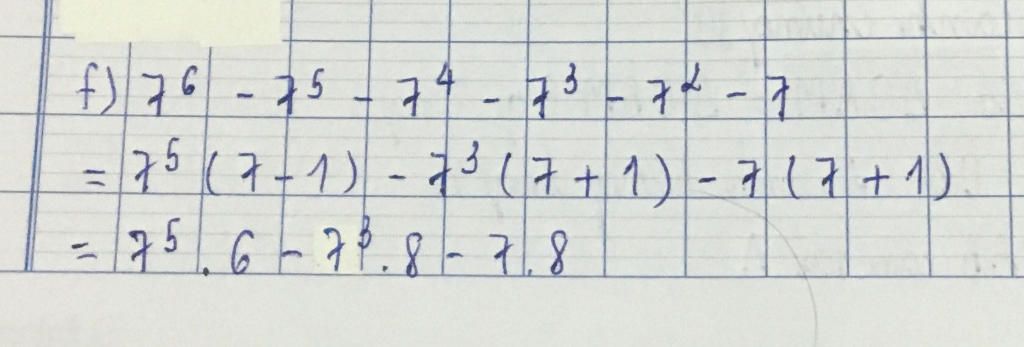 f) 7⁶ - 7⁵ - 7⁴ - 7³ - 7² - 7
= 7⁵ (7 - 1) - 7³ (7 + 1) - 7 (7 + 1)
= 7⁵ . 6 - 7³ . 8 - 7 . 8